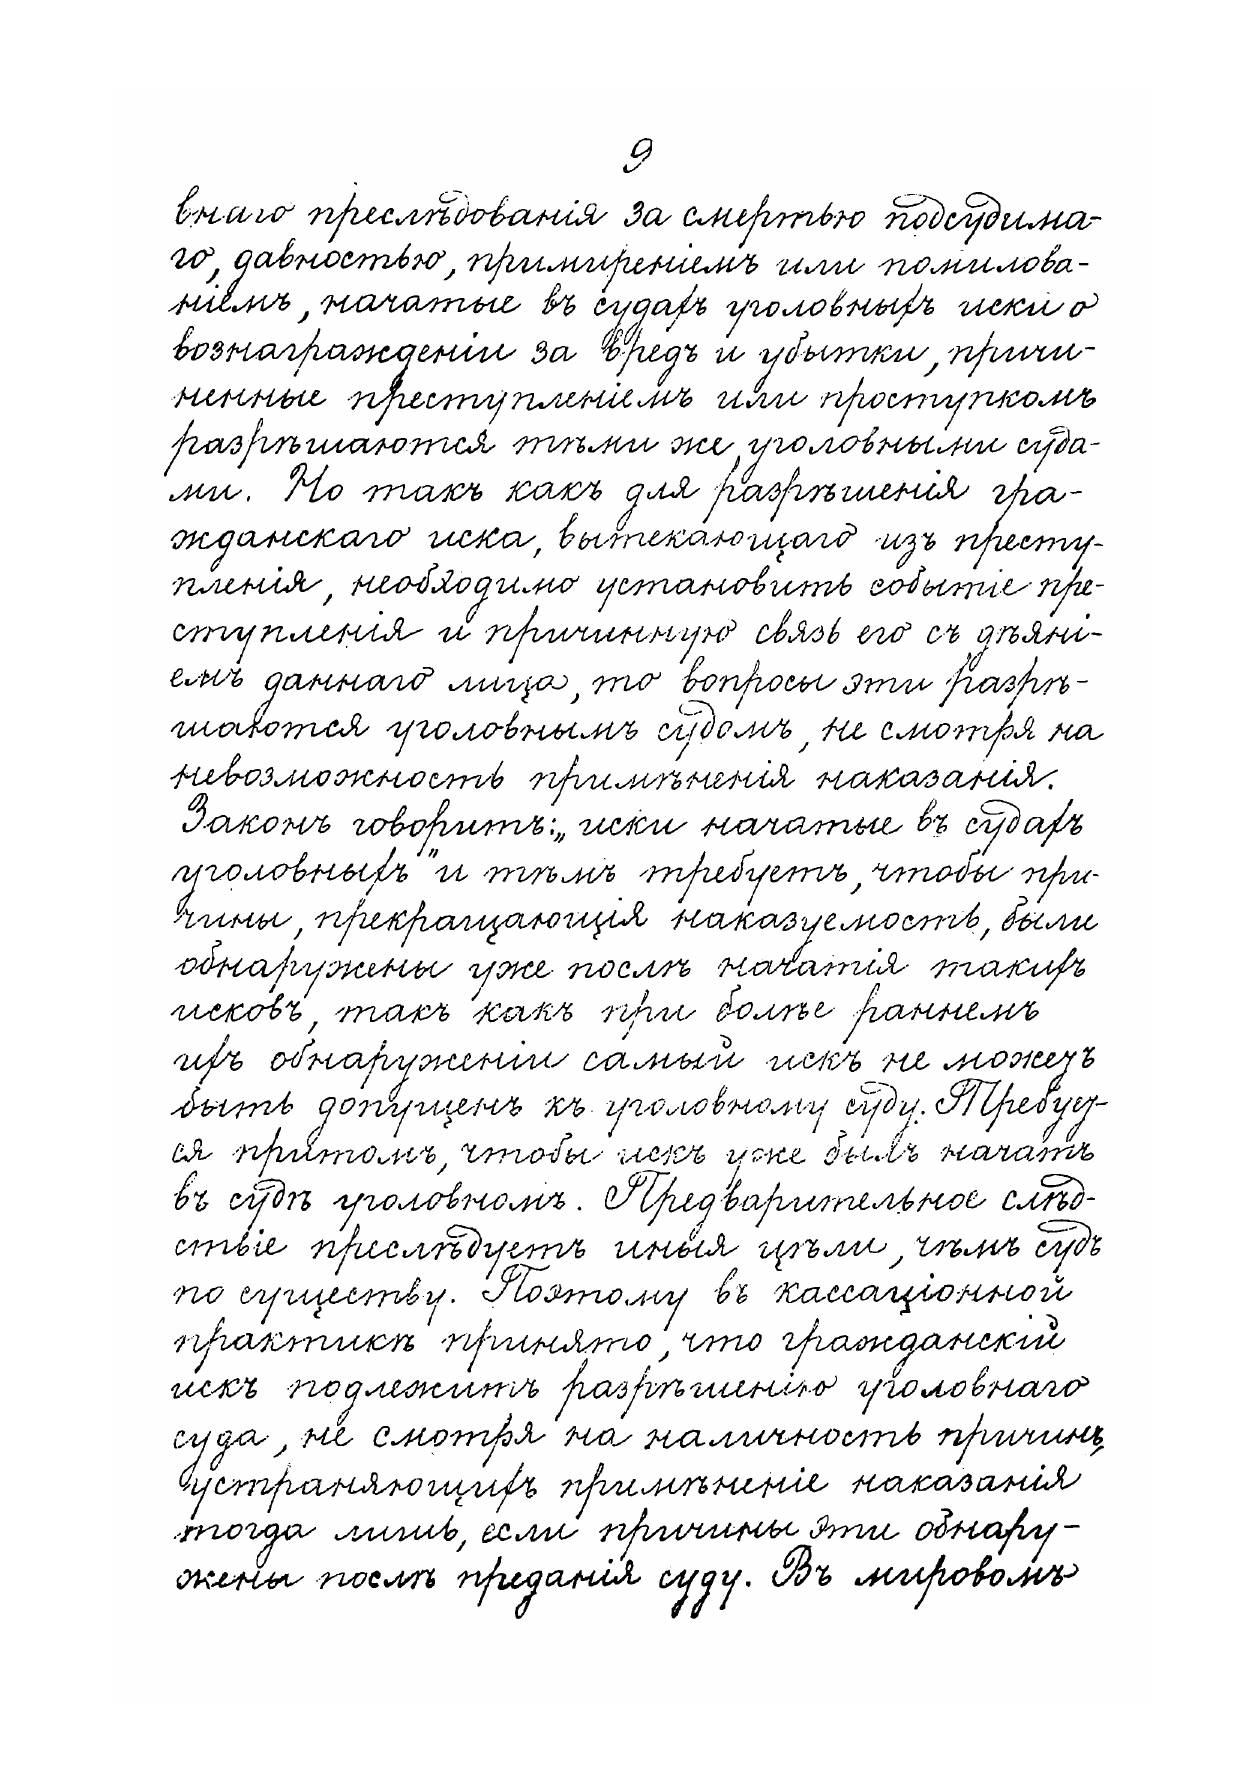 9
внаго преслѣдованія за смертью подсудима-
го, давностью, примиреніемъ или помилова-
ніемъ, начатые въ судахъ уголовныхъ иски о
вознагражденіи за вредъ и убытки, причи-
ненные преступленіемъ или проступкомъ
разрѣшаются тѣми же уголовными суда-
ми. Но такъ какъ для разрѣшенія гра-
жданскаго иска, вытекающаго изъ престу-
пленія, необходимо установить событіе пре-
ступленія и причинную связь его съ дѣяні-
емъ даннаго лица, то вопросы эти разрѣ-
шаются уголовнымъ судомъ, не смотря на
невозможность примѣненія наказанія.
Законъ говоритъ: „иски начатые въ судахъ
уголовныхъ" и тѣмъ требуетъ, чтобы при-
чины, прекращающія наказуемость, были
обнаружены уже послѣ начатія такихъ
исковъ, такъ какъ при болѣе раннемъ
ихъ обнаруженіи самый искъ не можетъ
быть допущенъ къ уголовному суду. Требует-
ся притомъ, чтобы искъ уже былъ начатъ
въ судѣ уголовномъ. Предварительное слѣд-
ствіе преслѣдуетъ иныя цѣли, чѣмъ судъ
по существу. Поэтому въ кассаціонной
практикѣ принято, что гражданскій
искъ подлежитъ разрѣшенію уголовнаго
суда, не смотря на наличность причинъ,
устраняющихъ примѣненіе наказанія
тогда лишь, если причины эти обнару-
жены послѣ преданія суду. Въ мировомъ